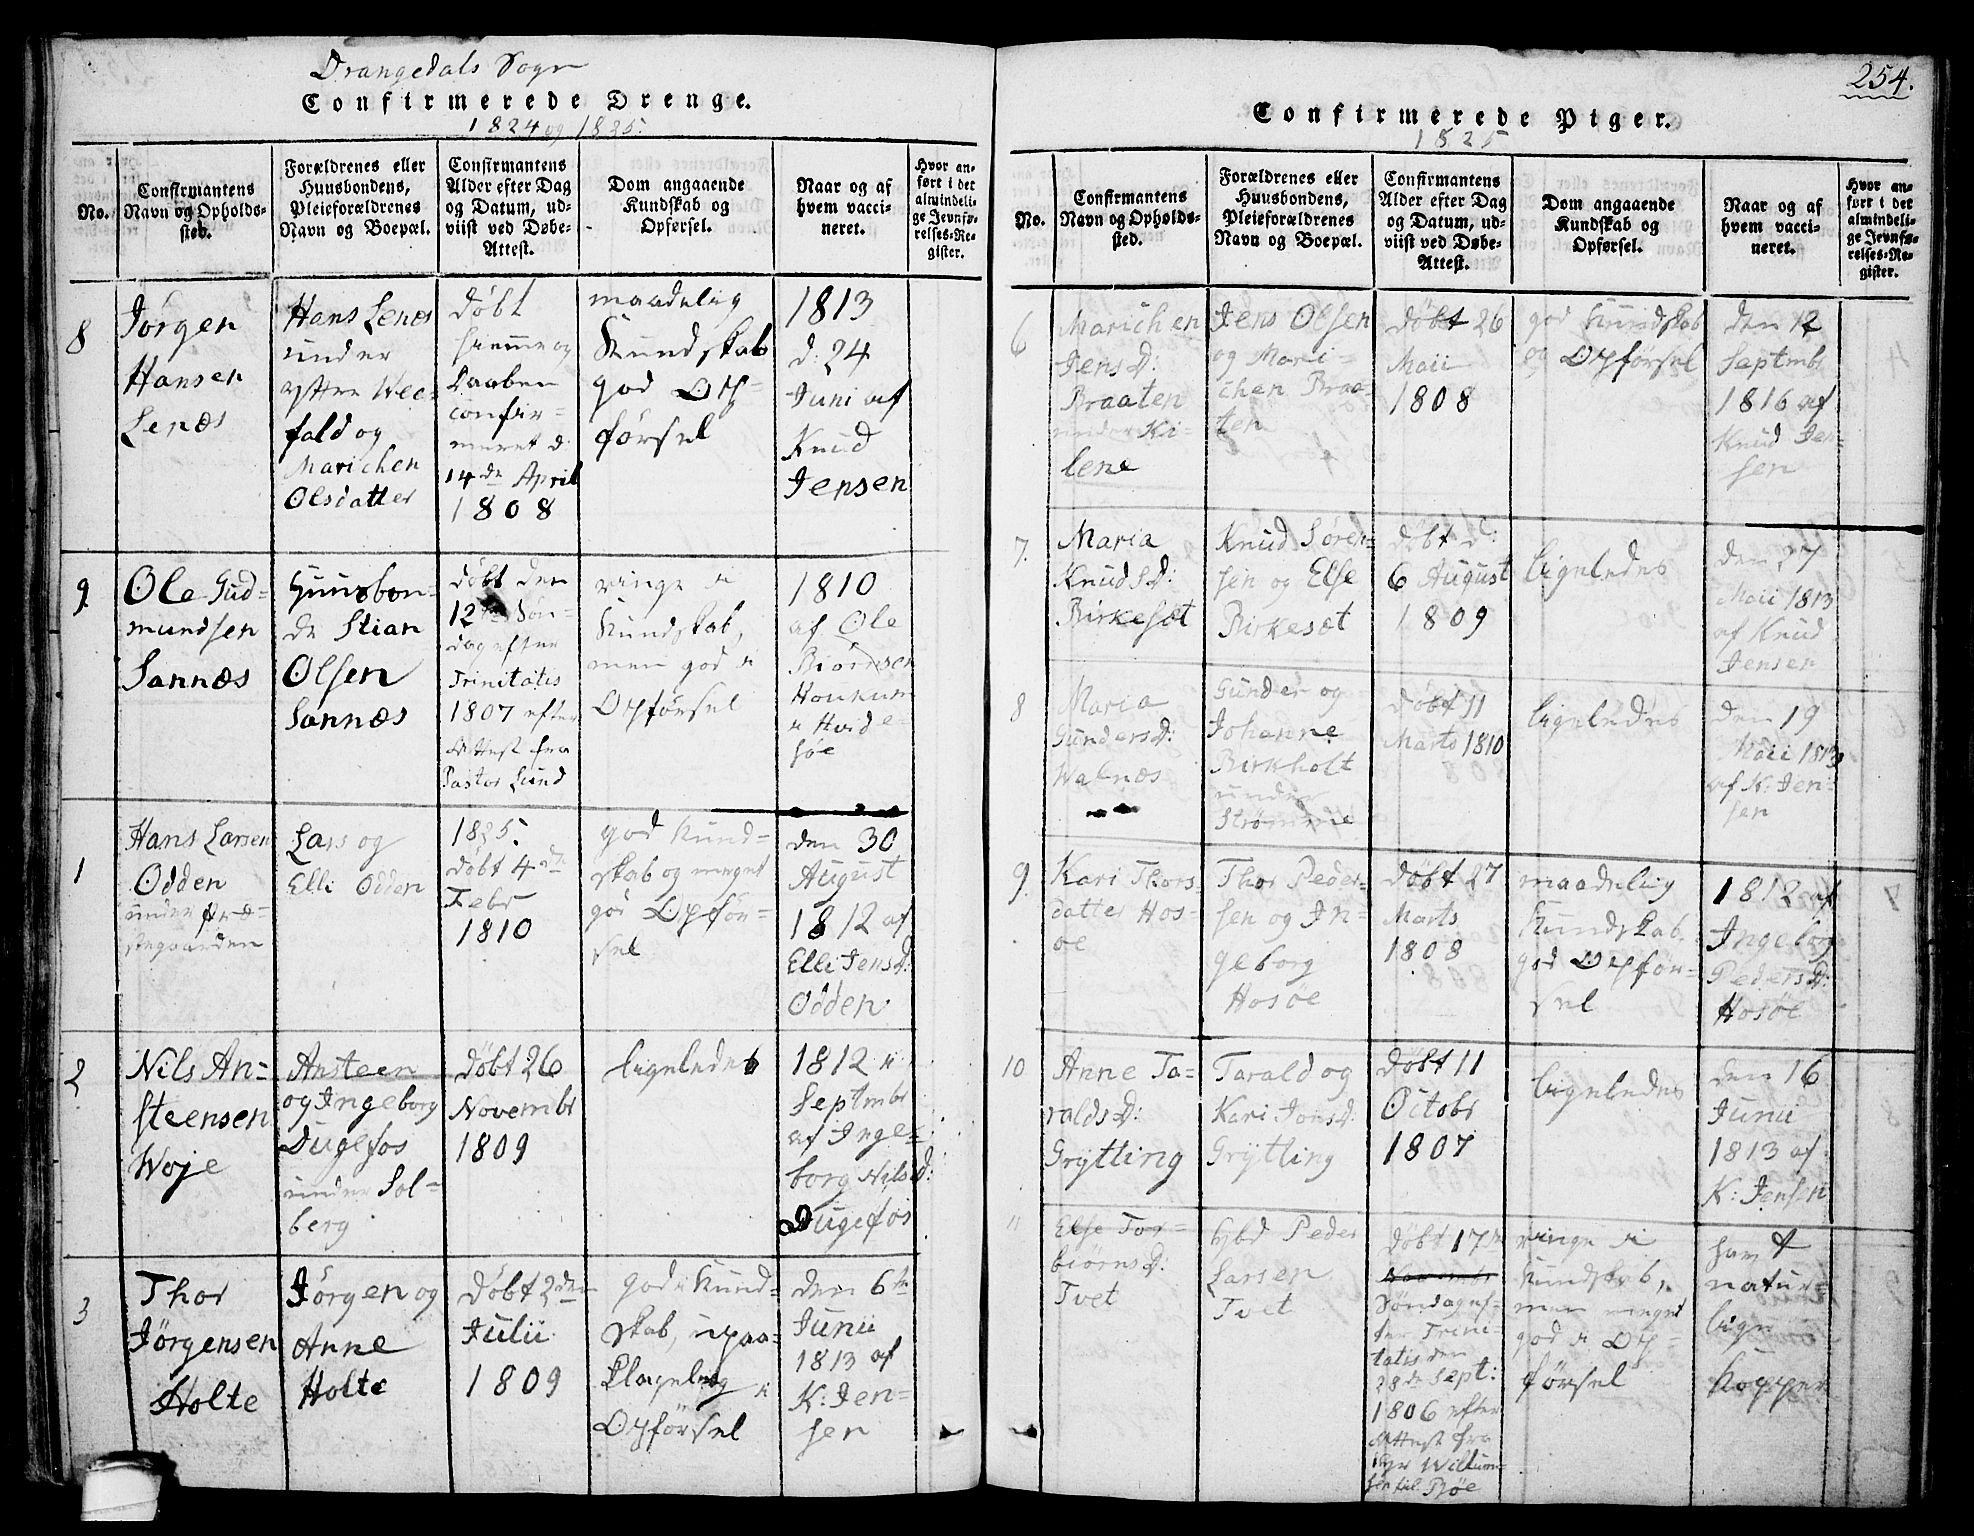 Drangedals Sogn
Confirmerede Drenge.
1824 og 1825.
No.
Confirmantens
Navn og Opholds-
sted.
Forældrenes eller
Huusbondens,
Pleieforældrenes
Navn og Boepæl.
Confirmantens
Alder efter Dag
og Datum, ud-
viist ved Døbe-
Attest.
Dom angaaende
Kundskab og
Opførsel.
Naar og af
hvem vacci-
neret.
Hvor an-
ført i det
almindeli-
ge Jevnfø-
relses-Re-
gister.
8
Jørgen
Hansen
Lenæs
Hans Lenæs
under
yttre Wee-
fald og
Marichen
Olsdatter
Døbt
hiemme og
Daaben
confir-
meret d.
14de April
1808
maadelig
Kundskab
god Op-
førsel
1813
d: 24
Juni af
Knud
Jensen
9.
Ole Gud-
mundsen
Sannæs
Huusbon-
de Stian
Olsen
Sannæs
Døbt den
12te Søn-
dag efter
Trinitatis
1807 efter
Attest fra
Pastor Lund
ringe
Kundskab,
men god
Opførsel
1810
af Ole
Biørnsen
Houkum
Hvide-
søe
1
Hans Larsen
Odden
under Præ-
stegaarden
Lars og
Elli Odden
1825.
Døbt 4de
Febr
1810
god Kund-
skab og meget
god Opfør-
sel
den 30
August
1812 af
Elli JensD:
Odden
2
Nils An-
steensen
Woje
Ansteen
og Ingeborg
Dugefos
under Sol-
berg
Døbt 26
Novembr
1809
ligeledes
1812
Septmbr
af Inge-
borg NilsD:
Dugefos
3
Thor
Jörgensen
Holte
Jörgen og
Anne
Holte
Døbt 2den
Julii
1809
god Kund-
skab, upaa-
klagelig
Opførsel
den 6te
Junii
1813 af
K: Jen-
sen
254.
Confirmerede Piger.
1825
No.
Confirmantens
Navn og Opholds-
sted.
Forældrenes eller
Huusbondens,
Pleieforældrenes
Navn og Boepæl.
Confirmantens
Alder efter Dag
og Datum, ud-
viist ved Døbe-
Attest.
Dom angaaende
Kundskab og
Opførsel.
Naar og af
hvem vacci-
neret.
Hvor an-
ført i det
almindeli-
ge Jevnfø-
relses-Re-
gister.
6
Marichen
JensD:
Braaten
under Ki-
lene
Jens Olsen
og Mari-
chen Braa-
ten
Døbt 26
Maii
1808
god Kundskab
og Opførsel
den 12
Septmbr
1816 af
Knud Jen-
sen
7.
Maria
KnudsD:
Birkesæt
Knud Sören-
sen og Else
Birkesæt
Døbt d:
6 August
1809
ligeledes
den 27
Maii 1813
af Knud
Jensen
8
Maria
GundersD:
Walnæs
Gunder og
Johanne
Birkholt
under
Strømme
Døbt 11
Marts 1810
ligeledes
den 19
Maii 1813
af K: Jen-
sen
9.
Kari Thors-
datter Hos-
øe
Thor Peder-
sen og In-
geborg
Hosøe
Døbt 27
Marts
1808
maadelig
Kundskab
god Opfør-
sel
1812 af
Ingeborg
PedersD:
Hosøe
10
Anne Ta-
raldsD:
Grÿtting
Tarald og
Kari JonsD:
Grÿtting
Døbt 11
Octobr
1807
ligeledes
den 16
Junii
1813 af
K: Jensen
11
Else Tor-
biørnsD:
Tvet
Hbd Peder
Larsen
Tvet
Døbt 17de
Søndag ef-
ter Trini-
tatis den
28de Sept:
1806 efter
Attest fra
Hr Willum-
sen til Bøe
ringe
Kundskab,
men meget
god Op-
førsel
havt
natur-
lige
Kopper